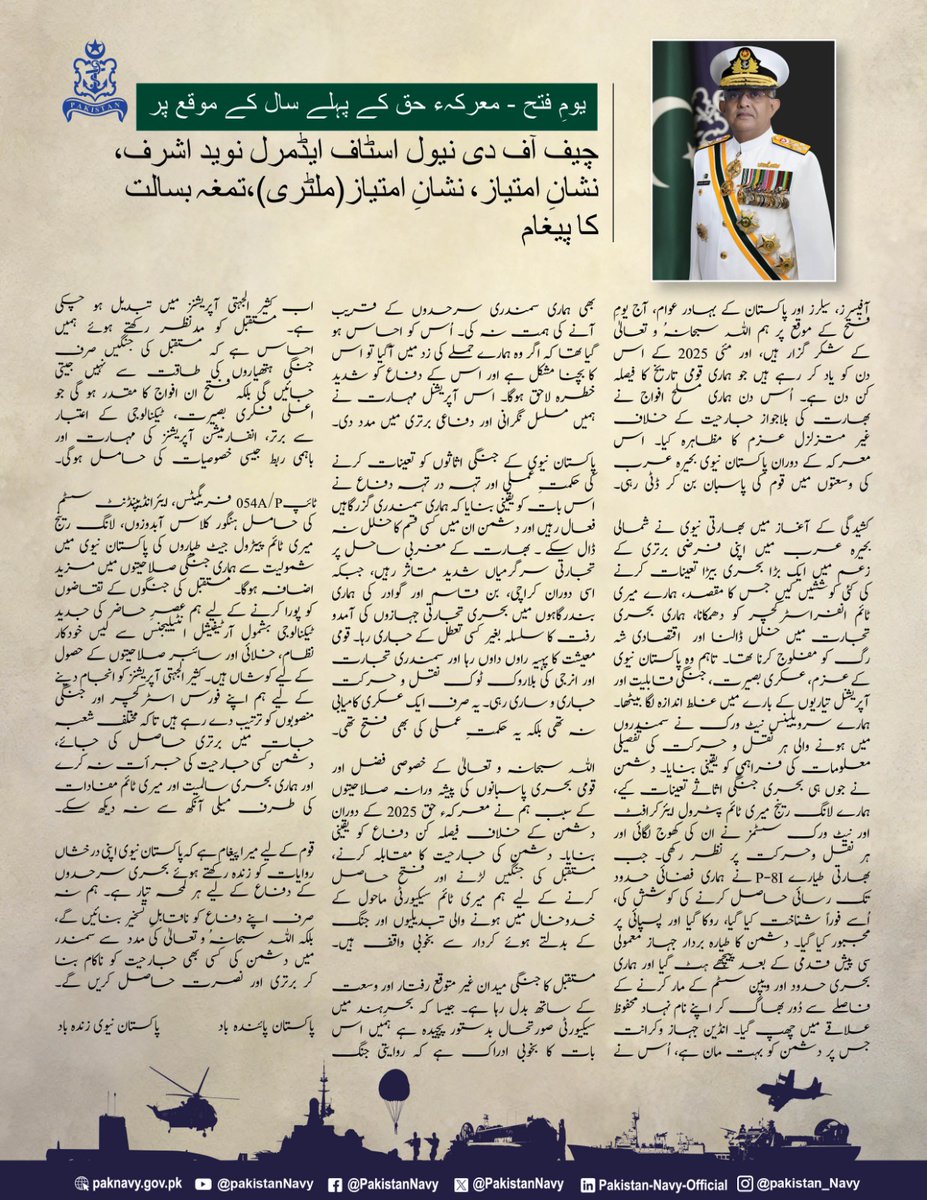 PAKISTAN
یومِ فتح - معرکہء حق کے پہلے سال کے موقع پر
چیف آف دی نیول اسٹاف ایڈمرل نوید اشرف،
نشانِ امتیاز، نشانِ امتیاز(ملٹری)،تمغہ بسالت
کا پیغام
آفیسرز، سیلرز اور پاکستان کے بہادر عوام، آج یومِ
فتح کے موقع پر ہم اللہ سبحانہُ و تعالیٰ
کے شکر گزار ہیں، اور مئی 2025 کے اس
دن کو یاد کر رہے ہیں جو ہماری قومی تاریخ کا فیصلہ
کن دن ہے۔ اُس دن ہماری مسلح افواج نے
بھارت کی بلاجواز جارحیت کے خلاف
غیر متزلزل عزم کا مظاہرہ کیا۔ اس
معرکہ کے دوران پاکستان نیوی بحیرہ عرب
کی وسعتوں میں قوم کی پاسبان بن کر ڈٹی رہی۔
کشیدگی کے آغاز میں بھارتی نیوی نے شمالی
بحیرہ عرب میں اپنی فرضی برتری کے
زعم میں ایک بڑا بحری بیڑا تعینات کرنے
کی کئی کوششیں کیں جس کا مقصد، ہمارے میری
ٹائم انفراسٹرکچر کو دھمکانا، ہماری بحری
تجارت میں خلل ڈالنا اور اقتصادی شہ
رگ کو مفلوج کرنا تھا۔ تاہم وہ پاکستان نیوی
کے عزم، عسکری بصیرت، جنگی قابلیت اور
آپریشنل تیاریوں کے بارے میں غلط اندازہ لگا بیٹھا۔
ہمارے سرویلینس نیٹ ورک نے سمندروں
میں ہونے والی ہر نقل و حرکت کی تفصیلی
معلومات کی فراہمی کو یقینی بنایا۔ دشمن
نے جوں ہی بحری جنگی اثاثے تعینات کیے،
ہمارے لانگ رینج میری ٹائم پٹرول ایئرکرافٹ
اور نیٹ ورک سسٹمز نے ان کی کھوج لگائی اور
ہر نقل وحرکت پر نظر رکھی۔ جب
بھارتی طیارے P-8I نے ہماری فضائی حدود
تک رسائی حاصل کرنے کی کوشش کی،
اُسے فوراً شناخت کیا گیا، روکا گیا اور پسپائی پر
مجبور کیا گیا۔ دشمن کا طیارہ بردار جہاز معمولی
سی پیش قدمی کے بعد پیچھے ہٹ گیا اور ہماری
بحری حدود اور ویپن سسٹم کے مار کرنے کے
فاصلے سے دُور بھاگ کر اپنے نام نہاد محفوظ
علاقے میں چھپ گیا۔ انڈین جہاز وکرانت
جس پر دشمن کو بہت مان ہے، اُس نے
بھی ہماری سمندری سرحدوں کے قریب
آنے کی ہمت نہ کی۔ اُس کو احساس ہو
گیا تھا کہ اگر وہ ہمارے حملے کی زد میں آگیا تو اس
کا بچنا مشکل ہے اور اس کے دفاع کو شدید
خطرہ لاحق ہوگا۔ اس آپریشنل مہارت نے
ہمیں مسلسل نگرانی اور دفاعی برتری میں مدد دی۔
پاکستان نیوی کے جنگی اثاثوں کو تعینات کرنے
کی حکمتِ عملی اور تہہ در تہہ دفاع نے
اس بات کو یقینی بنایا کہ ہماری سمندری گزرگاہیں
فعال رہیں اور دشمن ان میں کسی قسم کا خلل نہ
ڈال سکے ۔ بھارت کے مغربی ساحل پر
تجارتی سرگرمیاں شدید متاثر رہیں، جبکہ
اسی دوران کراچی، بن قاسم اور گوادر کی ہماری
بندرگاہوں میں بحری تجارتی جہازوں کی آمدو
رفت کا سلسلہ بغیر کسی تعطل کے جاری رہا۔ قومی
معیشت کا پہیہ راوں داوں رہا اور سمندری تجارت
اور انرجی کی بلاروک ٹوک نقل و حرکت
جاری و ساری رہی۔ یہ صرف ایک عسکری کامیابی
نہ تھی بلکہ یہ حکمتِ عملی کی بھی فتح تھی۔
اللہ سبحانہ و تعالیٰ کے خصوصی فضل اور
قومی بحری پاسبانوں کی پیشہ ورانہ صلاحیتوں
کے سبب ہم نے معرکہء حق 2025 کے دوران
دشمن کے خلاف فیصلہ کن دفاع کو یقینی
بنایا۔ دشمن کی جارحیت کا مقابلہ کرنے،
مستقبل کی جنگیں لڑنے اور فتح حاصل
کرنے کے لیے ہم میری ٹائم سیکیورٹی ماحول کے
خدوخال میں ہونے والی تبدیلیوں اور جنگ
کے بدلتے ہوئے کردار سے بخوبی واقف ہیں۔
مستقبل کا جنگی میدان غیر متوقع رفتار اور وسعت
کے ساتھ بدل رہا ہے۔ جیسا کہ بحرِہند میں
سیکیورٹی صورتحال بدستور پیچیدہ ہے ہمیں اس
بات کا بخوبی ادراک ہے کہ روایتی جنگ
اب کثیر الجہتی آپریشنز میں تبدیل ہو چکی
ہے۔ مستقبل کو مدنظر رکھتے ہوئے ہمیں
احساس ہے کہ مستقبل کی جنگیں صرف
جنگی ہتھیاروں کی طاقت سے نہیں جیتی
جائیں گی بلکہ فتح ان افواج کا مقدر ہو گی جو
اعلی فکری بصیرت، ٹیکنالوجی کے اعتبار
سے برتر، انفارمیشن آپریشنز کی مہارت اور
باہمی ربط جیسی خصوصیات کی حامل ہوگی۔
ٹائپ 054A/P فریگیٹس، ایئرانڈیپنڈنٹ سسٹم
کی حامل ہنگور کلاس آبدوزوں، لانگ رینج
میری ٹائم پیٹرول جیٹ طیاروں کی پاکستان نیوی میں
شمولیت سے ہماری جنگی صلاحیتوں میں مزید
اضافہ ہوگا۔ مستقبل کی جنگوں کے تقاضوں
کو پورا کرنے کے لیے ہم عصرِ حاضر کی جدید
ٹیکنالوجی بشمول آرٹیفیشل انٹیلیجنس سے لیس خودکار
نظام، خلائی اور سائبر صلاحیتوں کے حصول
کے لیے کوشاں ہیں۔ کثیر الجہتی آپریشنز کو انجام دینے
کے لیے ہم اپنے فورس اسٹرکچر اور جنگی
منصوبوں کو ترتیب دے رہے ہیں تاکہ مختلف شعبہ
جات میں برتری حاصل کی جائے،
دشمن کسی جارحیت کی جرأت نہ کرے
اور ہماری بحری سالمیت اور میری ٹائم مفادات
کی طرف میلی آنکھ سے نہ دیکھ سکے۔
قوم کے لیے میرا پیغام ہے کہ پاکستان نیوی اپنی درخشاں
روایات کو زندہ رکھتے ہوئے بحری سرحدوں
کے دفاع کے لیے ہر لمحہ تیار ہے۔ ہم نہ
صرف اپنے دفاع کو ناقابلِ تسخیر بنائیں گے،
بلکہ اللہ سبحانہُ و تعالیٰ کی مدد سے سمندر
میں دشمن کی کسی بھی جارحیت کو ناکام بنا
کر برتری اور نصرت حاصل کریں گے۔
پاکستان پائندہ باد پاکستان نیوی زندہ باد
paknavy.gov.pk @pakistanNavy @PakistanNavy @PakistanNavy Pakistan-Navy-Official @pakistan_Navy